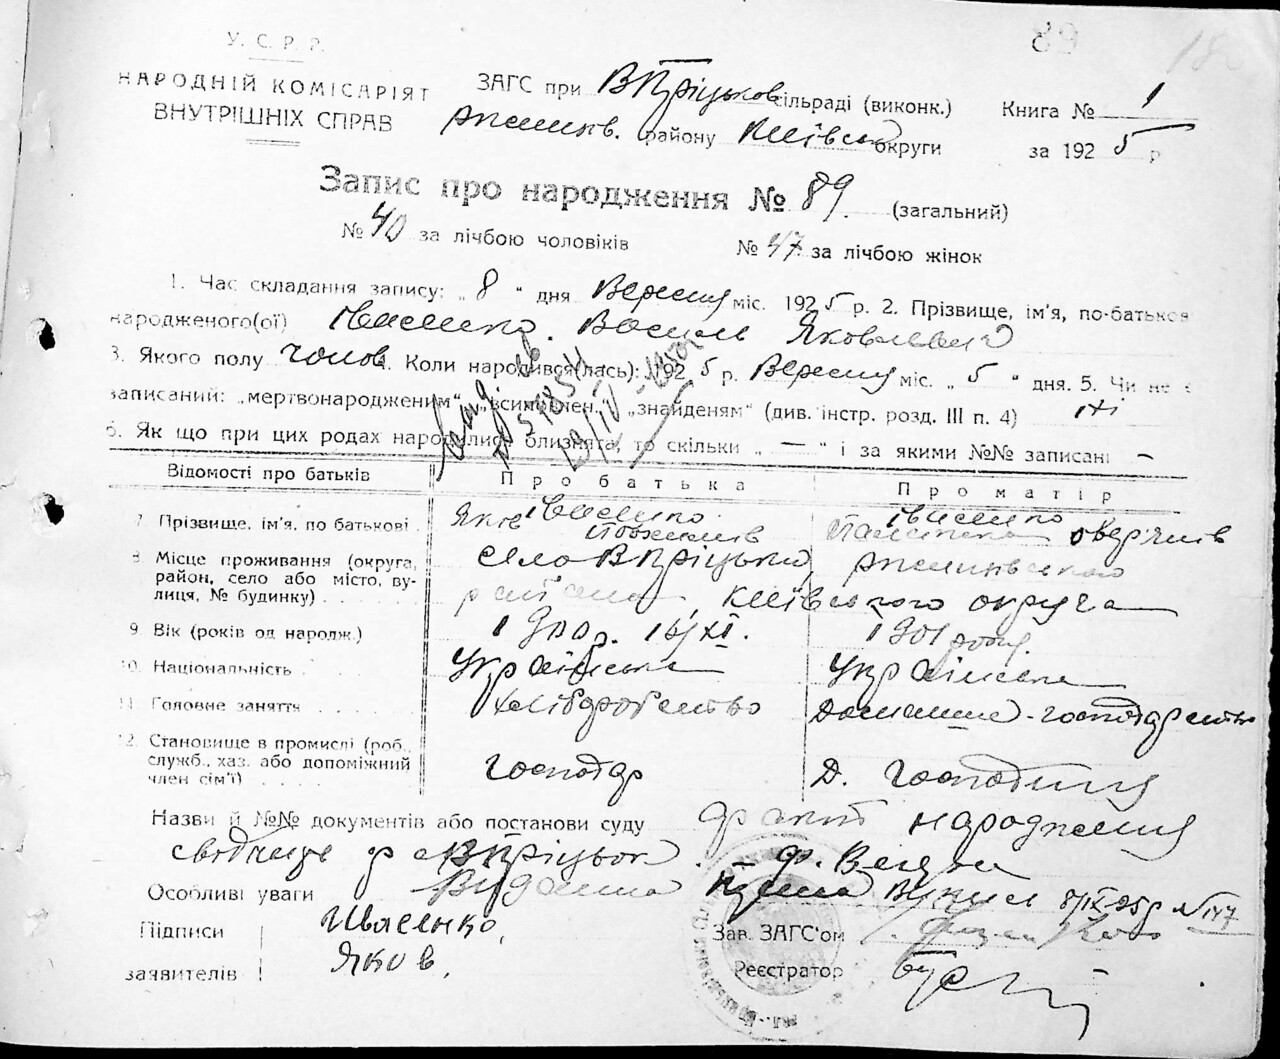 89
18
У. С. Р. Р.
НАРОДНІЙ КОМІСАРІЯТ
ВНУТРІШНІХ СПРАВ
ЗАГС при В Пріцьков сільраді (виконк.)
району Київськ округи
Книга № 1
за 192 5 р
Запис про народження № 89. (загальний)
№ 40 за лічбою чоловіків № 47 за лічбою жінок
1. Час складання запису: „ 8 “ дня Вересня міс. 192 5 р. 2. Прізвище, ім'я, по-батькові
народженого(ої) Івасенко Василь Яковлевич
3. Якого полу чолов. 4. Коли народився(лась): 192 5 р. Вересня міс. „ 5 “ дня. 5. Чи не є
записаний: „мертвонародженим“, „всиновлен.“, „знайденям“ (див. інстр. розд. III п. 4) ні
6. Як що при цих родах народились близнята, то скільки „ — “ і за якими №№ записані —
Відомості про батьків
Про батька
Про матір
7. Прізвище, ім'я, по батькові
Івасенко Яків
Івасенко
8. Місце проживання (округа, район, село або місто, вулиця, № будинку)
село В Пріцьки,
району, Київського округа
9. Вік (років од народж.)
1900 р. 16/XI.
1901 року.
10. Національність
Українська
Українська
11. Головне заняття
Хліборобство
Домашнє-господарство
12. Становище в промислі (роб., служб., хаз. або допоміжний член сім'ї)
господар
Д. господиня
Назви й №№ документів або постанови суду факт народження
В Пріцьк
Особливі уваги Видана Виписи 8/IX-25р №147
Підписи
заявителів
Ивасенко
Яков.
Зав. ЗАГС'ом
Реєстратор